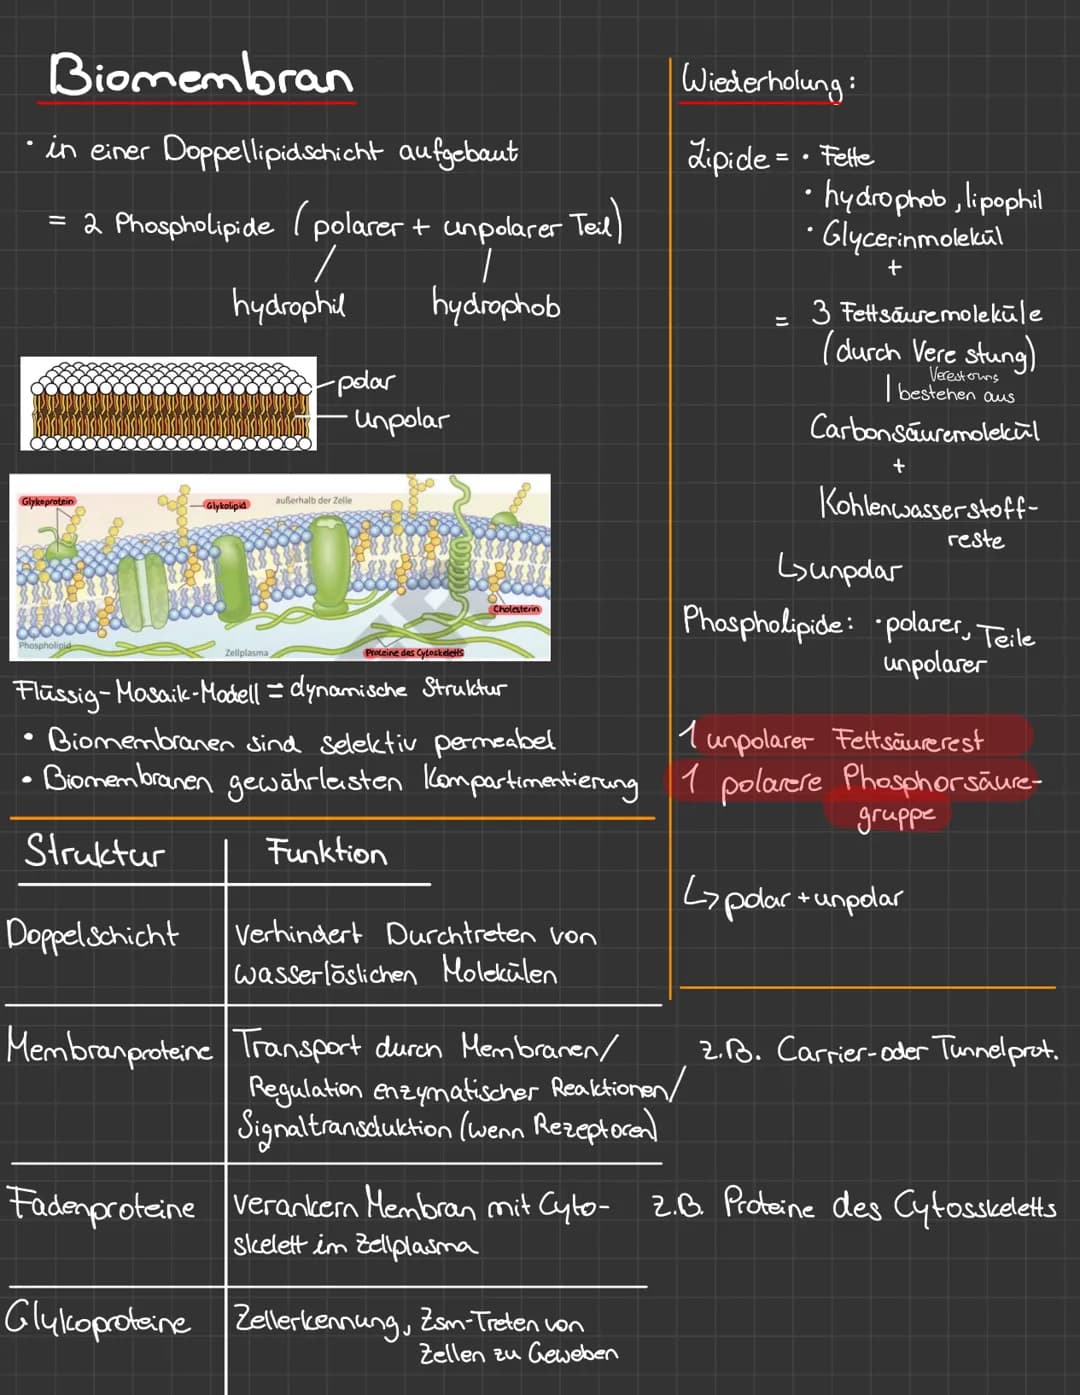 Biomembran
• in einer Doppellipidschicht aufgebaut
= 2 Phospholipide (polarer + unpolarer Teil)
hydrophil hydrophob
polar
unpolar
Glykoprotein
Glykolipid
außerhalb der Zelle
Cholesterin
Phospholipid
Zellplasma
Proteine des Cytoskeletts
Flüssig-Mosaik-Modell = dynamische Struktur
• Biomembranen sind selektiv permeabel
• Biomembranen gewährleisten Kompartimentierung
Wiederholung:
Lipide = • Fette
• hydrophob, lipophil
• Glycerinmolekül
+
= 3 Fettsäuremoleküle
(durch Vere stung)
Veresterung
bestehen aus
Carbonsäuremolekül
+
Kohlenwasserstoff-
reste
↳ unpolar
Phospholipide: • polarer, Teile
unpolarer
1 unpolarer Fettsäurerest
1 polarere Phosphorsäure-
gruppe
↳ polar + unpolar
Struktur Funktion
Doppelschicht verhindert Durchtreten von
wasserlöslichen Molekülen
Membranproteine Transport durch Membranen/ z.B. Carrier- oder Tunnelprot.
Regulation enzymatischer Reaktionen/
Signaltransduktion (wenn Rezeptoren)
Fadenproteine verankern Membran mit Cyto- z.B. Proteine des Cytosskeletts
skelett im Zellplasma
Glykoproteine Zellerkennung, Zsm-Treten von
Zellen zu Geweben